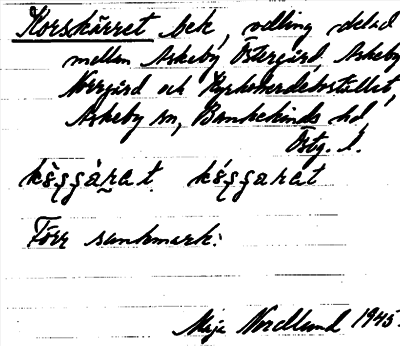 Korskärret bek, velling delad
mellan Askeby Östergård, Askeby
Norrgård och Kyrkoherdebostället,
Askeby sn, Bankekinds hd,
Östg. l.
Förr sankmark.
Maja Nordlund 1945.